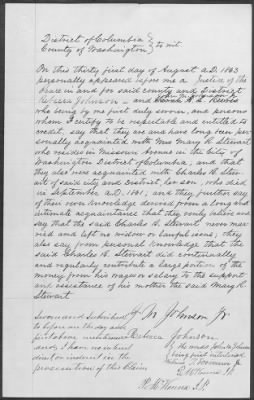 District of Columbia }
County of Washington } to wit.
On this thirty first day of August A.D. 1863
personally appeared before me a Justice of the
Peace in and for said County and District
John W. Johnson Jr
Rebecca Johnson and Sarah A. S. Lewis
who being by me first duly sworn, and persons
whom I certify to be respectable and entitled to
credit, say that they are and have long been per-
sonally acquainted with Mrs Mary R. Stewart
who resides in Missouri Avenue in the City of
Washington District of Columbia, and that
they also were acquainted with Charles H. Stew-
art of said city and District her son, who died
in September A.D. 1861; and they further say
of their own knowledge derived from a long and
intimate acquaintance that they verily believe and
say that the said Charles H. Stewart never mar-
ried and left no widow or lawful issue; they
also say from personal knowledge that the
said Charles H. Stewart did continually
and regularly contribute a large portion of the
money from his wages or salary to the support
and assistance of his mother the said Mary R.
Stewart.
Sworn and Subscribed J W Johnson Jr
to before me the day and
year above mentioned Rebecca Johnson
and I have no interest
direct or indirect in the
prosecution of this claim
the words John W Johnson
being first interlined
P. McKenna J.P.
P. McKenna J.P.